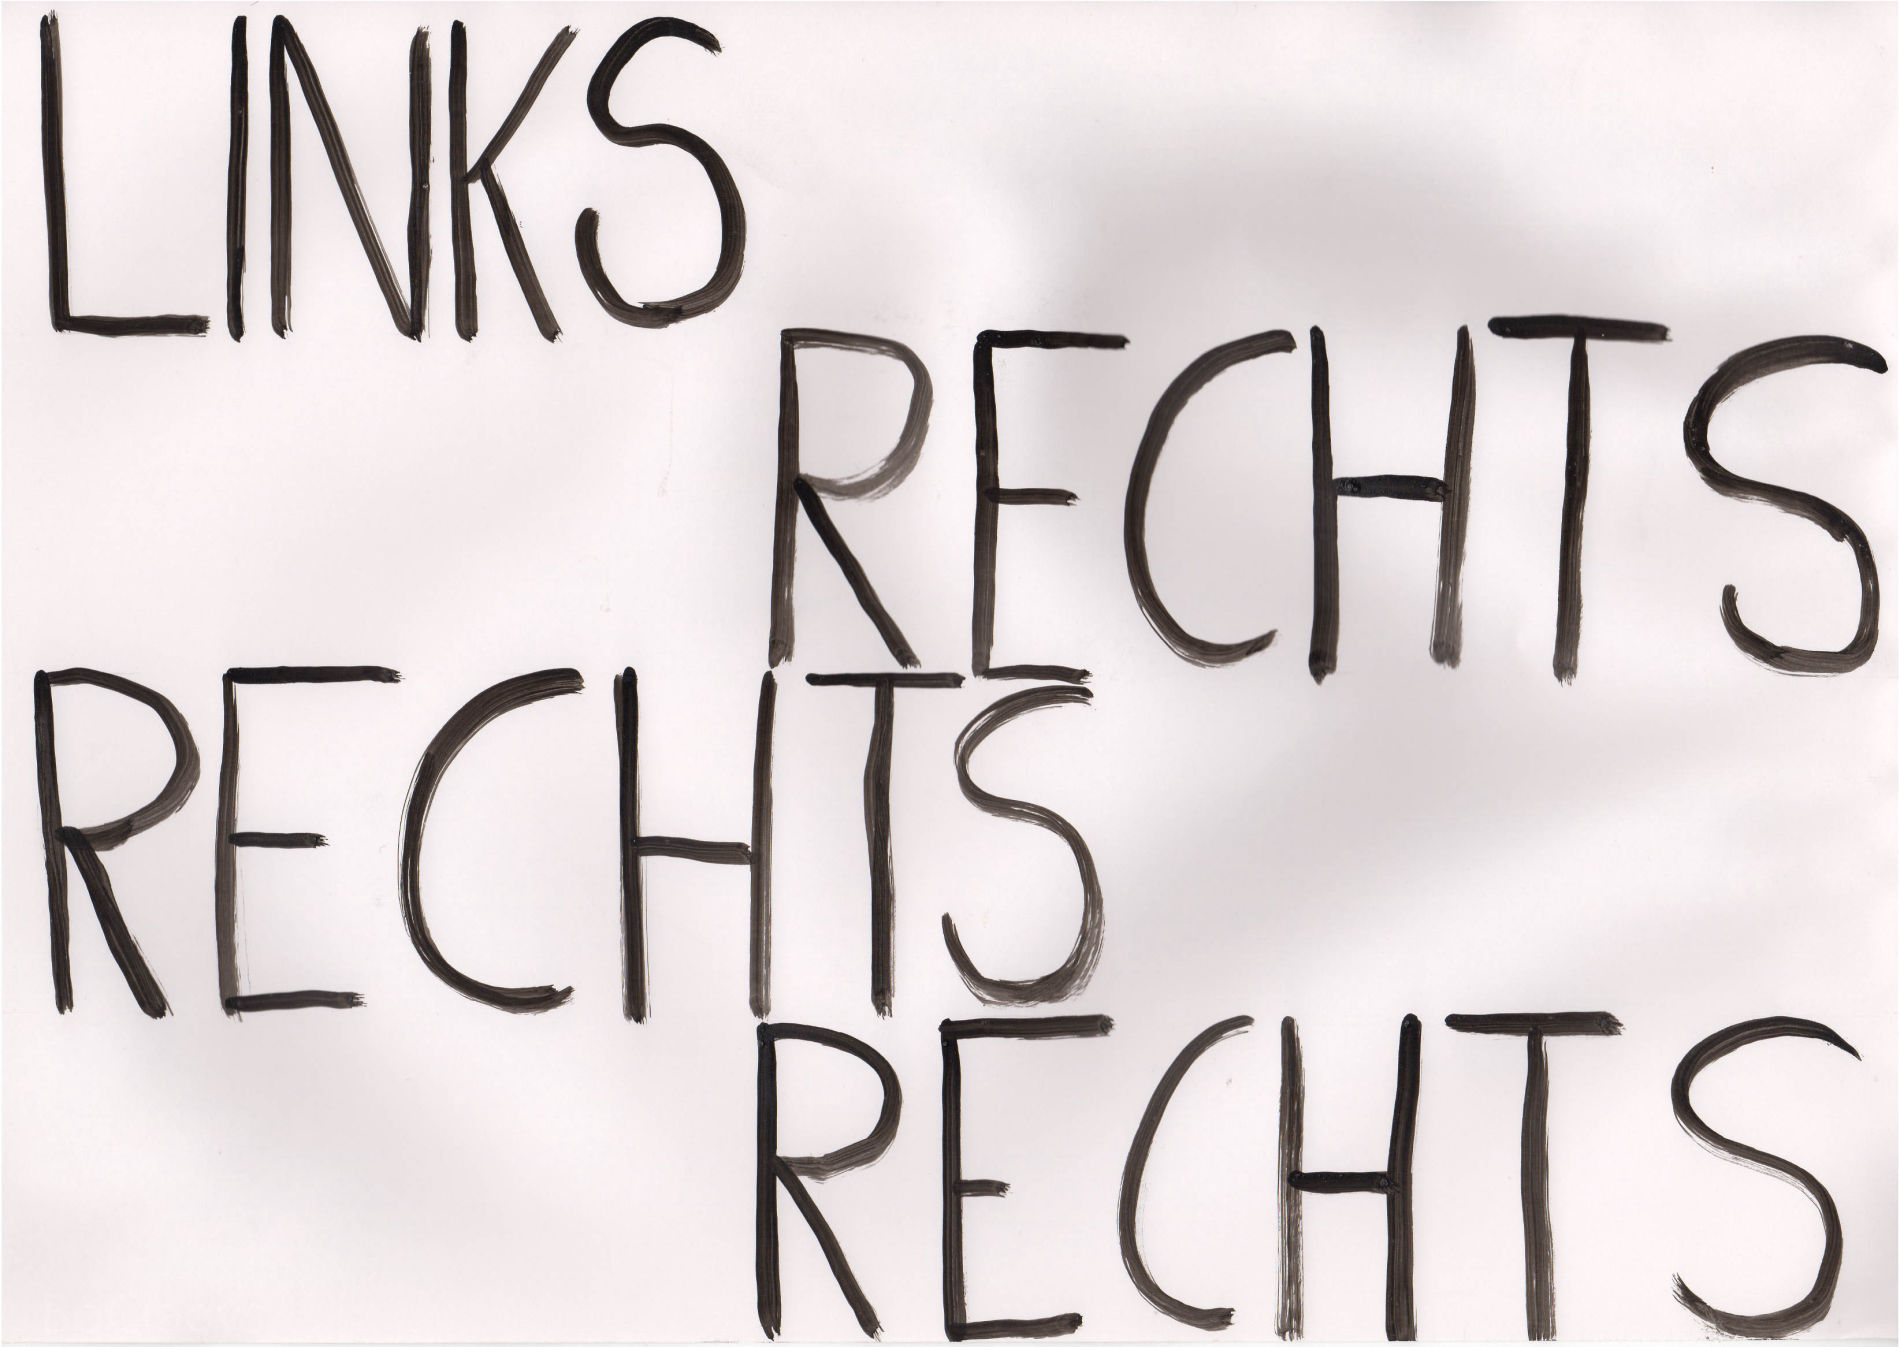 LINKS
RECHTS
RECHTS
RECHTS